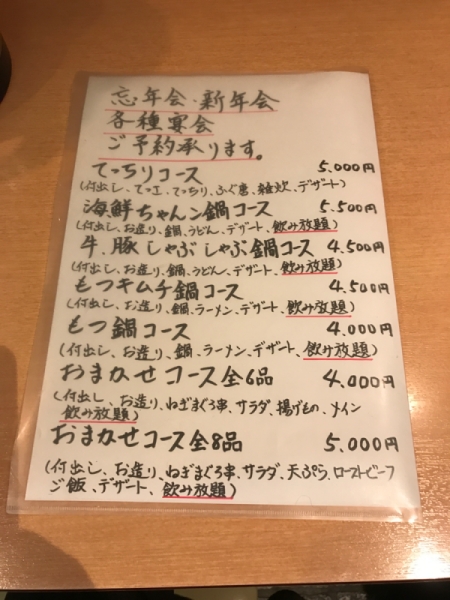 忘年会・新年会
各種宴会
ご予約承ります。
てっちりコース 5.000円
(付出し、てっさ、てっちり、ふぐ唐、雑炊、デザート)
海鮮ちゃんこ鍋コース 5.500円
(付出し、お造り、鍋、うどん、デザート、飲み放題)
牛、豚しゃぶしゃぶ鍋コース 4.500円
(付出し、お造り、鍋、うどん、デザート、飲み放題)
もつキムチ鍋コース 4.500円
(付出し、お造り、鍋、ラーメン、デザート、飲み放題)
もつ鍋コース 4.000円
(付出し、お造り、鍋、ラーメン、デザート、飲み放題)
おまかせコース全6品 4.000円
(付出し、お造り、ねぎまぐろ串、サラダ、揚げもの、メイン
飲み放題)
おまかせコース全8品 5.000円
(付出し、お造り、ねぎまぐろ串、サラダ、天ぷら、ローストビーフ
ご飯、デザート、飲み放題)